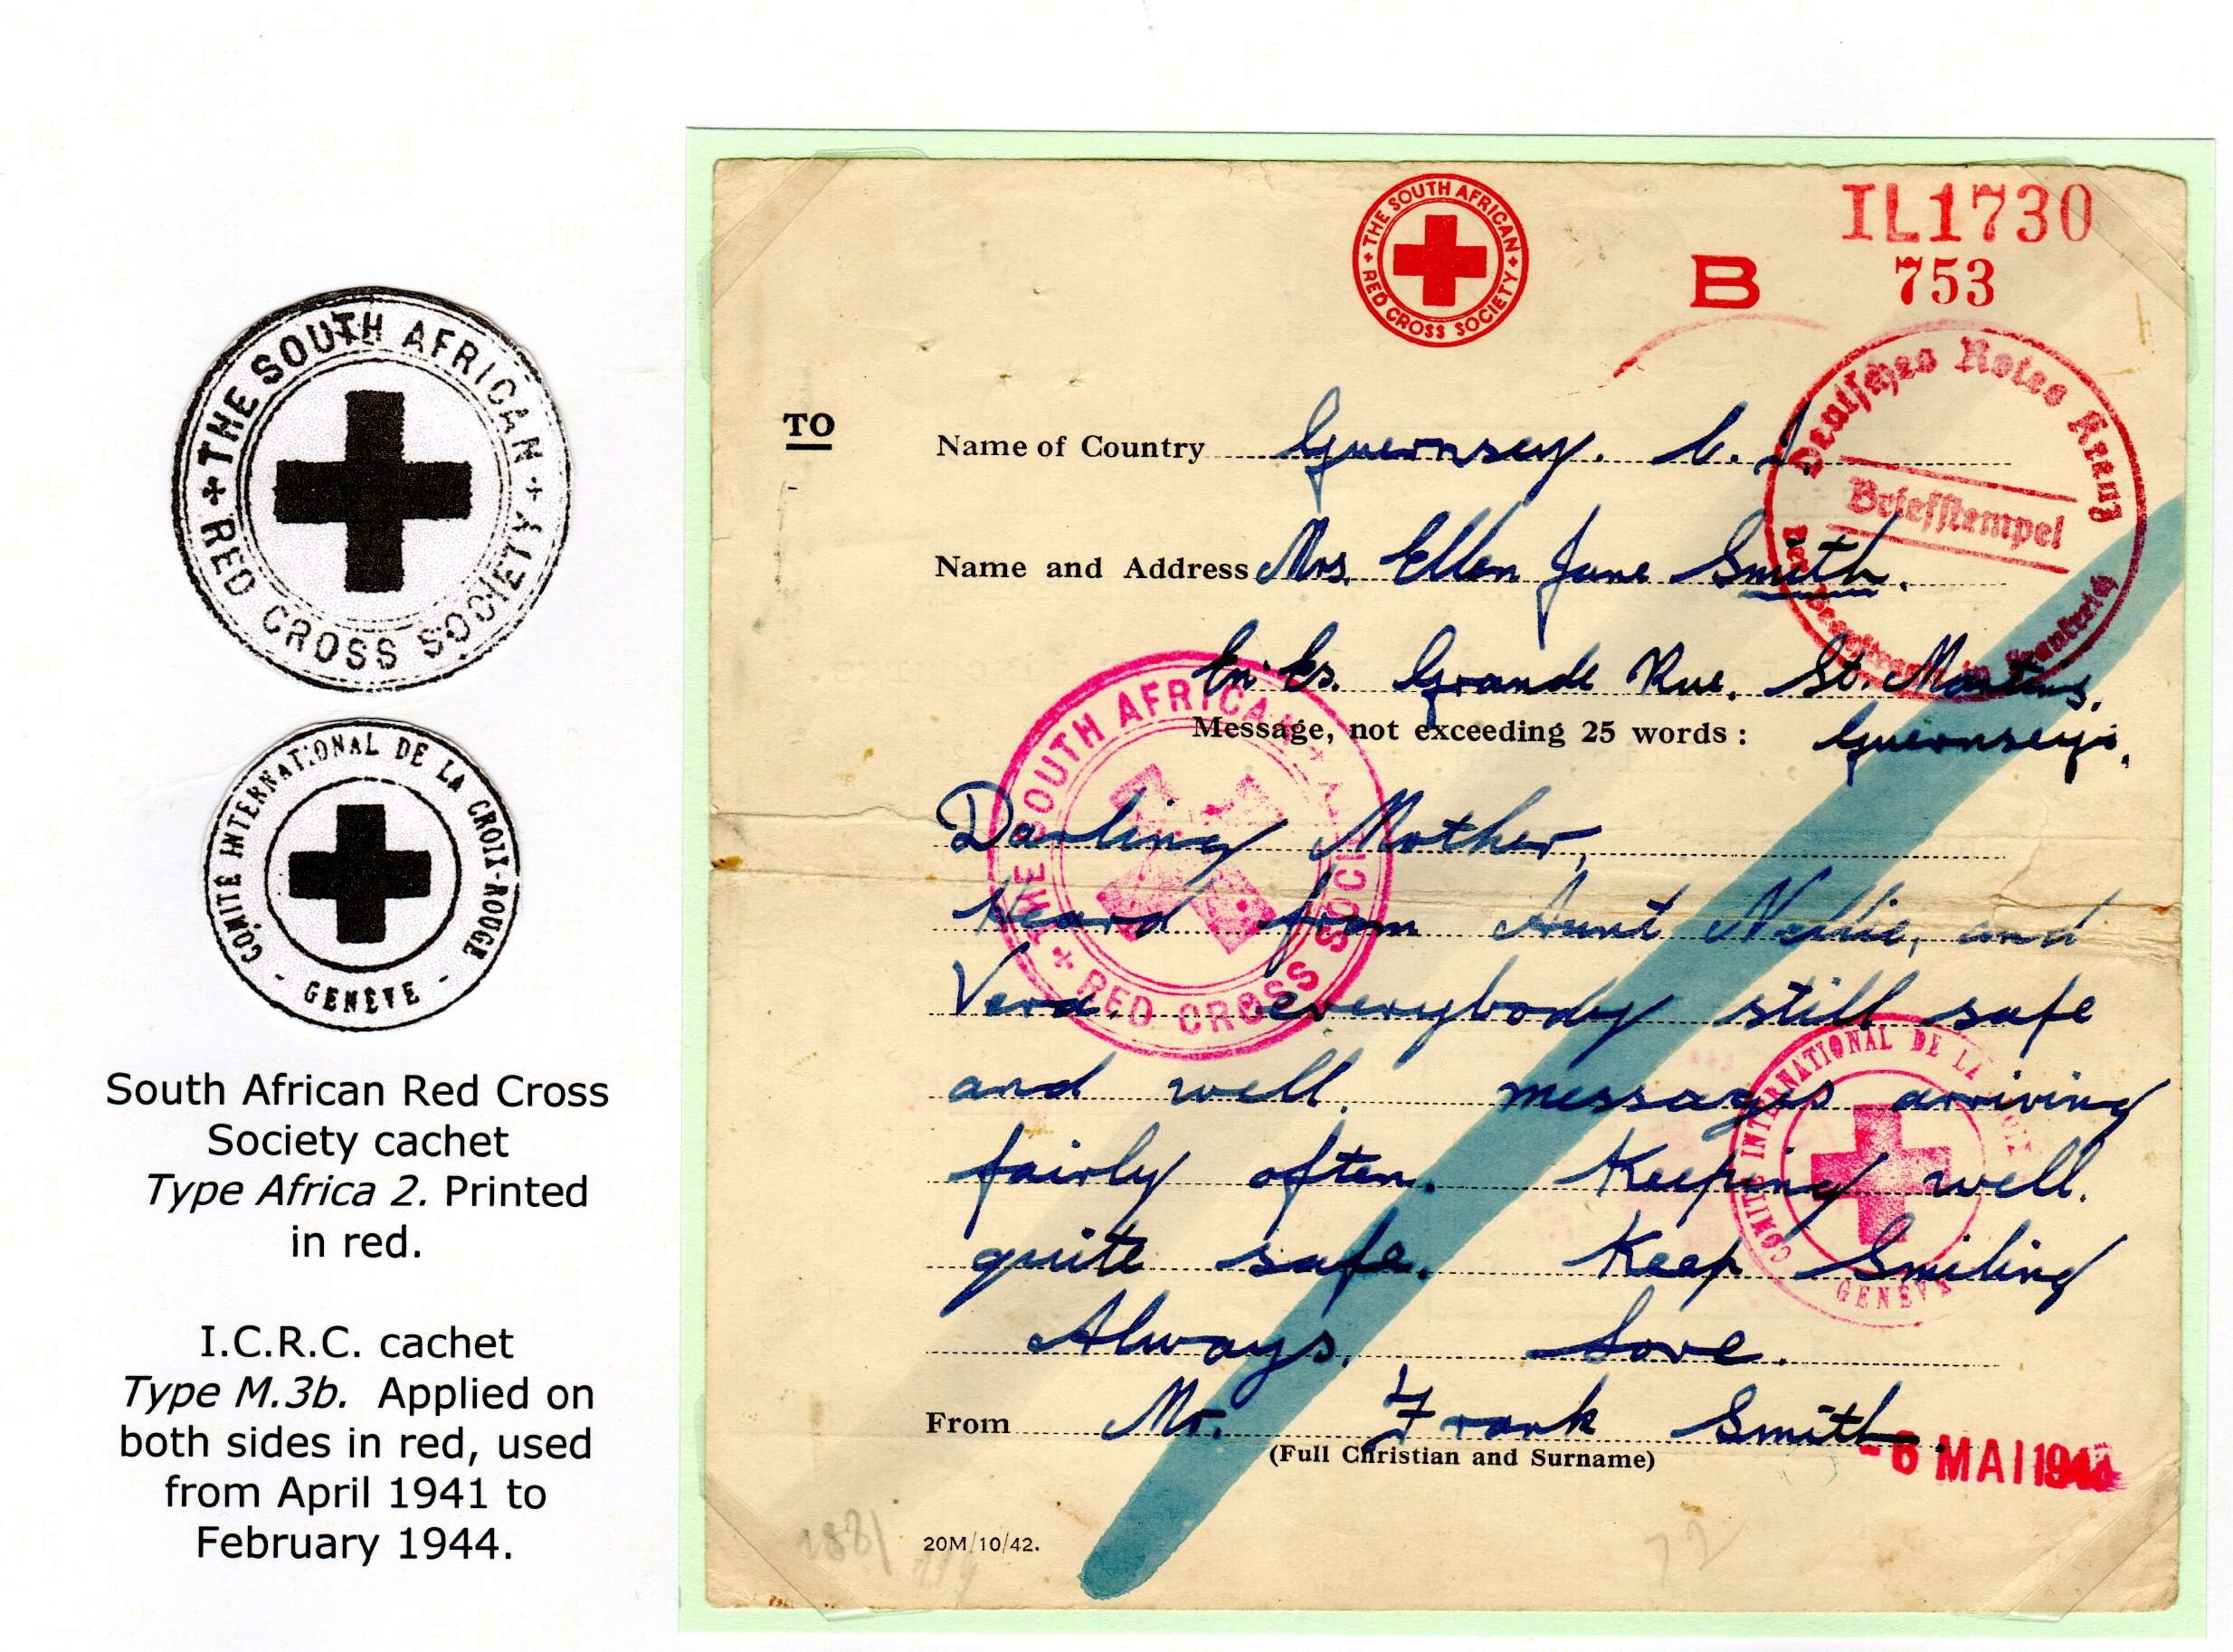 THE SOUTH AFRICAN
RED CROSS SOCIETY
COMITÉ INTERNATIONAL DE LA CROIX-ROUGE
- GENÈVE -
South African Red Cross
Society cachet
Type Africa 2. Printed
in red.
I.C.R.C. cachet
Type M.3b. Applied on
both sides in red, used
from April 1941 to
February 1944.
THE SOUTH AFRICAN
RED CROSS SOCIETY
IL1730
B 753
Deutsches Rotes Kreuz
Briefstempel
TO
Name of Country Guernsey. C. I.
Name and Address Mrs. Ellen Jane Smith.
Grande Rue. St. Martins.
Message, not exceeding 25 words: Guernsey.
THE SOUTH AFRICAN
RED CROSS SOCIETY
Darling Mother,
Heard from Aunt Nellie, and
Vera. everybody still safe
and well. messages arriving
fairly often. Keeping well.
quite safe. Keep Smiling
Always. Love.
COMITÉ INTERNATIONAL DE LA CROIX
GENÈVE
From Mr. Frank Smith.
(Full Christian and Surname)
- 6 MAI 194
20M/10/42.
1881
72